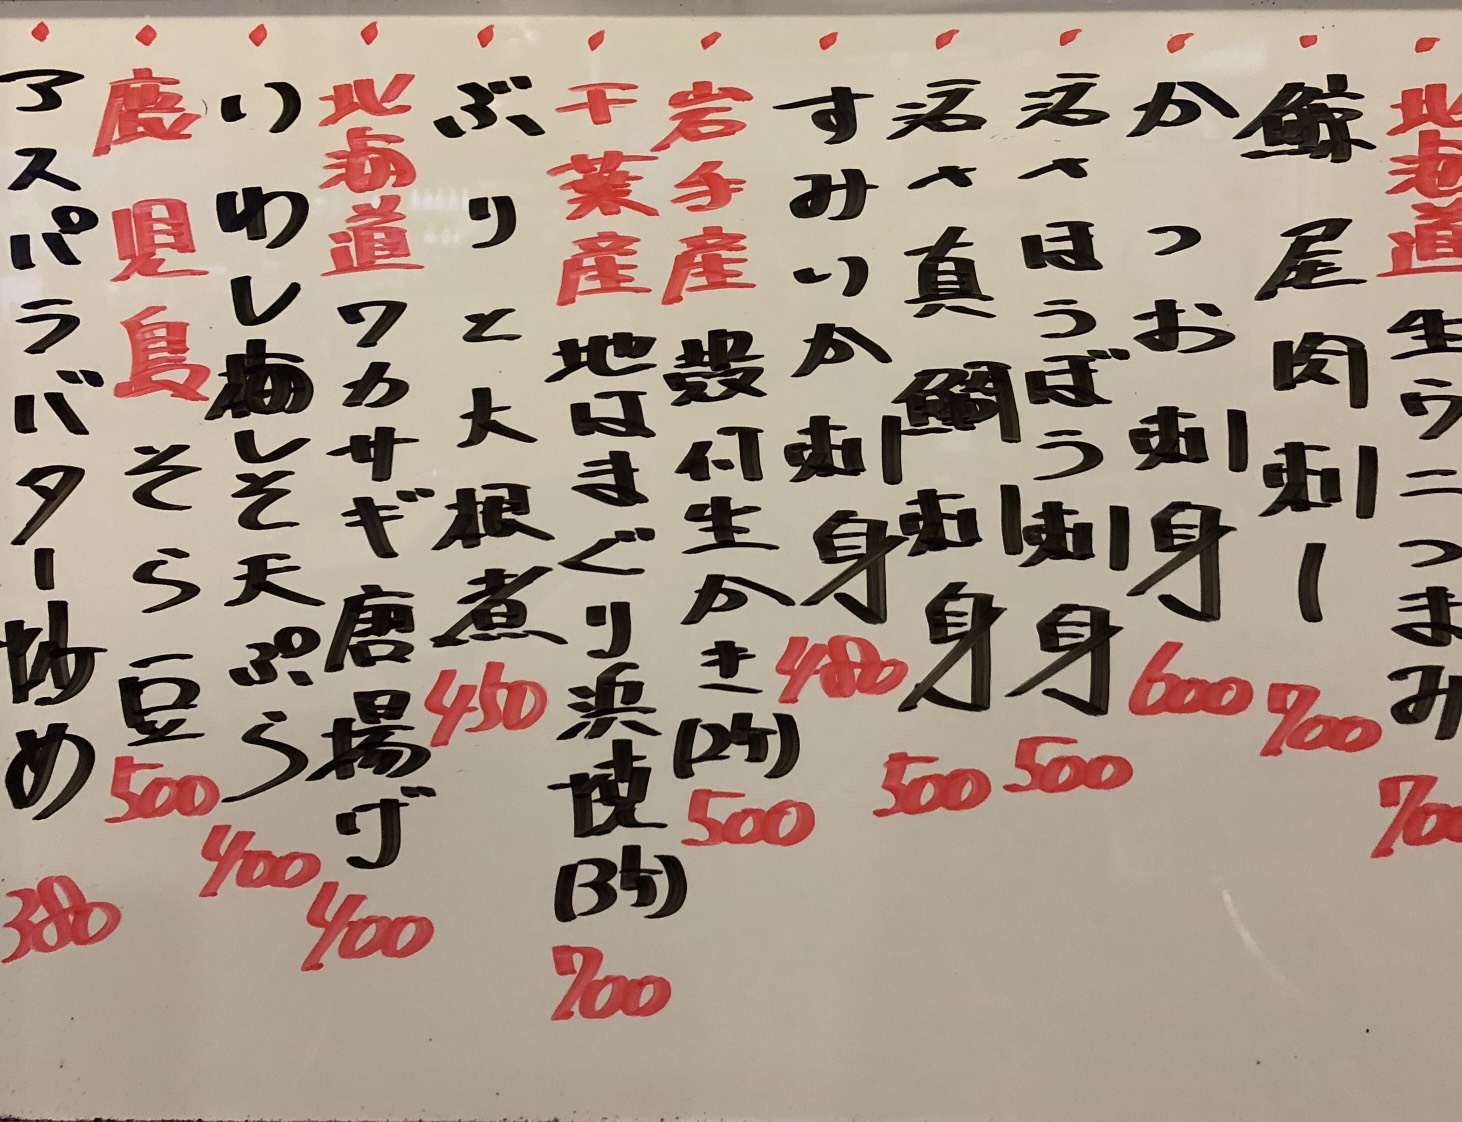 北海道生ウニつまみ 700
鯨尾肉刺し 700
かつお刺身 600
活〆ほうぼう刺身 500
活〆真鯛刺身 500
すみいか刺身 480
岩手産殻付生かき(2ケ) 500
千葉産地はまぐり浜焼(3ケ) 700
ぶりと大根煮 450
北海道ワカサギ唐揚げ 400
いわし梅しそ天ぷら 400
鹿児島そら豆 500
アスパラバター炒め 380